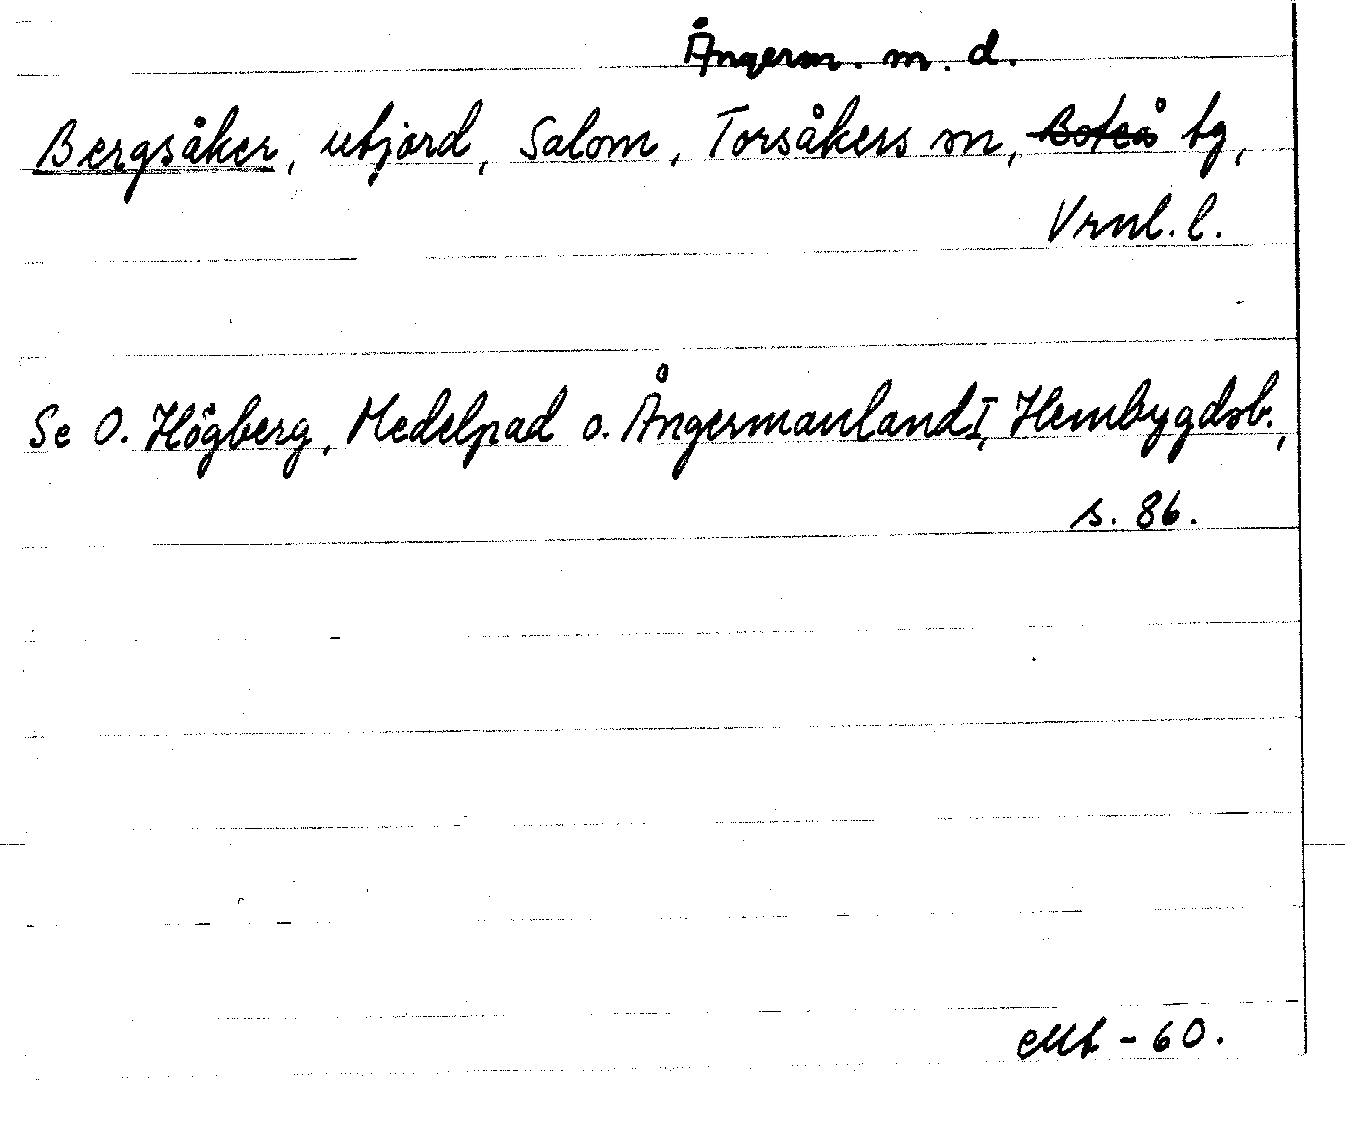 Ångerm. m. d.
Bergsåker, utjord, Salom, Torsåkers sn, Boteå tg,
Vrnl. l.
Se O. Högberg, Medelpad o. Ångermanland I, Hembygdsb.,
s. 86.
- 60.